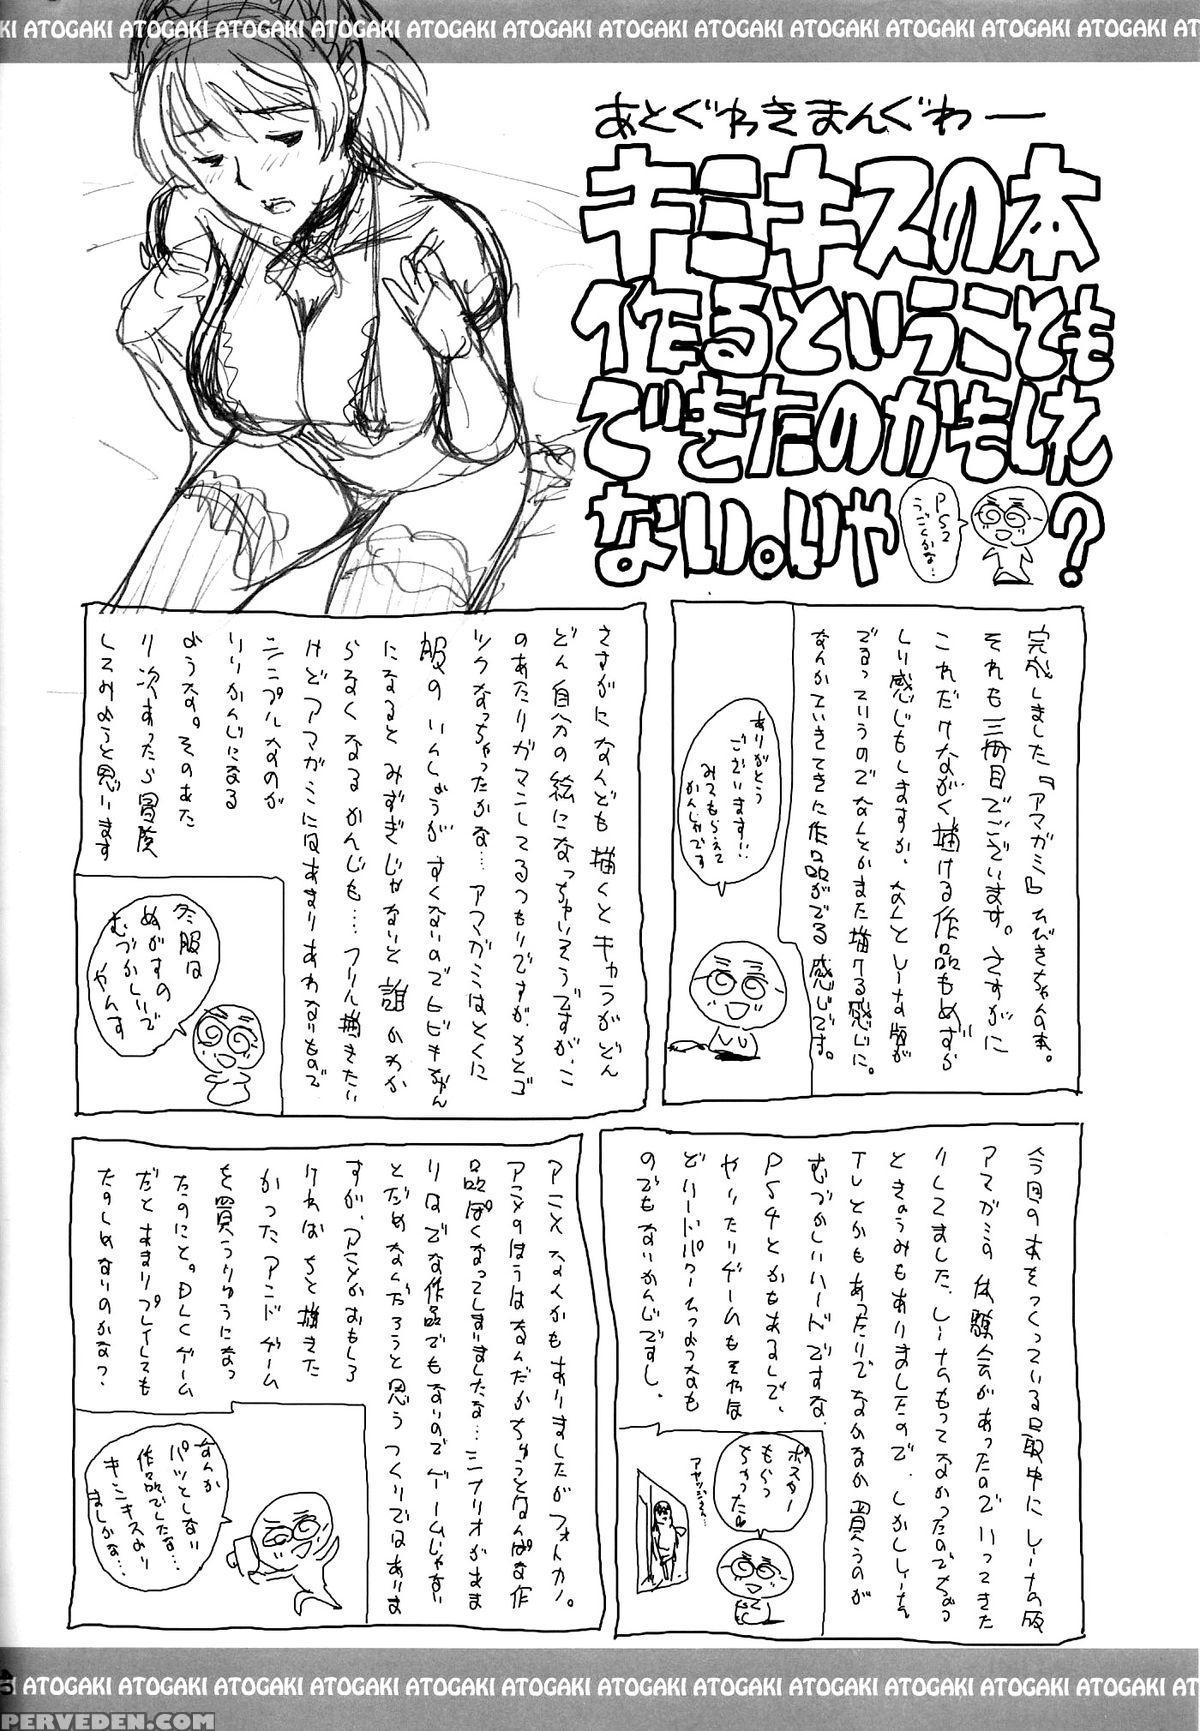 KI ATOGAKI ATOGAKI ATOGAKI ATOGAKI ATOGAKI ATOGAKI ATOGAKI ATOGAKI ATOGAKI ATOGAKI ATOGAKI ATO
あとぐゎきまんぐわー
キミキスの本
作るということも
できたのかもしれ
ない。いや?
PS2
うごくかな…
完成しました『アマガミ』ひびきちゃん本。
それも三冊目でございます。さすがに
これだけながく描ける作品もめずら
しい感じもしますが、なんとビータ版が
でるっていうのでなんとかまた描ける感じに。
なんかていきてきに作品がでる感じです。
ありがとう
ございます!!
みてもらえて
かんしゃです
さすがになんども描くとキャラがどん
どん自分の絵になっちゃいそうですが、こ
のあたりガマンしてるつもりですが、ちとゴ
ツクなっちゃったかな…アマガミはとくに
服のいんしょうがすくないのでヒビキちゃん
になるとみずぎじゃないと誰かわか
らなくなるかんじも…フリル描きたい
けどアマガミにはあまりあわないもので
シンプルなのが
いいかんじになる
ような。そのあた
り次あったら冒険
してみようと思います
冬服は
ぬがすの
むづかしいで
やんす
今回の本をつくっている最中にビータの版
アマガミの体験会があったのでいってきた
りしてました。ビータもってなかったのでちょっ
ときょうみもありましたので。しかしビータ
TVとかもあったりでなかなか買うのが
むづかしいハードですな。
PS4とかもあるしで、
やりたいゲームもそんな
どハードパワーひつようなも
のでもないかんじですし。
ポスター
もらっ
ちゃった
アニメなんかもありましたがフォトカノ。
アニメのほうはなんだかちょっとはんぱな作
品ぽくなってしまいましたな…シナリオがあま
りはでな作品でもないのでゲームじゃない
とだめなんだろうと思うつくりではありま
すが。アニメがおもしろ
ければちと描きた
かったアンドゲーム
を買うりゆうになっ
たのにと。DLCゲーム
だとあまりプレイしても
たのしめないのかな?
なんか
パッとしない
作品でしたな…
キミキスより
ましかな…
ATOGAKI ATOGAKI ATOGAKI ATOGAKI ATOGAKI ATOGAKI ATOGAKI ATOGAKI ATOGAKI ATOGAKI ATOGAKI
PERVEDEN.COM